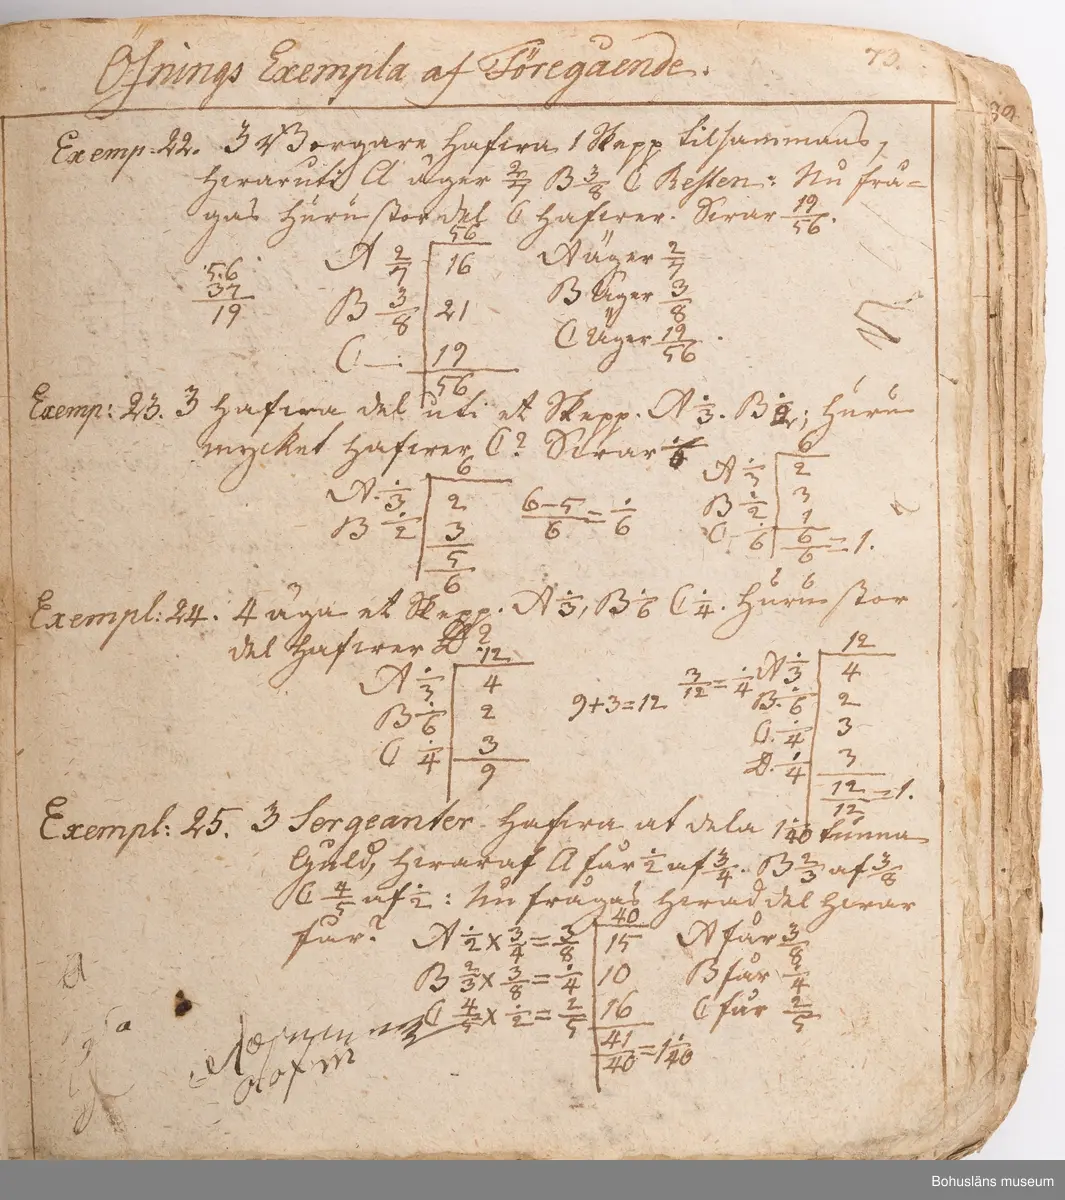 Öfnings Exempla af Föregående.
73.
39
Exemp: 22. 3 Borgare hafwa 1 Skepp tilsammans,
hwaruti A äger 2/7 B 3/8 C Resten: Nu frå=
gas huru stor del C hafwer. Swar 19/56.
56
A 2/7 16 A äger 2/7
56
37
19
B 3/8 21 B äger 3/8
C 19 C äger 19/56.
56
Exemp: 23. 3 hafwa del uti et Skepp. A 1/3. B 1/2; huru
mycket hafwer C? Swar 1/6
6
A 1/3 2
B 1/2 3
5/6
6-5/6 = 1/6
6
A 1/3 2
B 1/2 3
C 1/6 1
6/6 = 1.
Exempl: 24. 4 äga et Skepp. A 1/3, B 1/6 C 1/4. huru stor
del hafwer D?
12
A 1/3 4
B 1/6 2
C 1/4 3
9
9+3=12
3/12 = 1/4
12
A 1/3 4
B. 1/6 2
C. 1/4 3
D. 1/4 3
12/12 = 1.
Exempl: 25. 3 Sergeanter hafwa at dela 1 1/40 tunna
Guld, hwaraf A får 1/2 af 3/4. B 2/3 af 3/8
C 4/5 af 1/2: Nu frågas hwad del hwar
får?
40
A 1/2 x 3/4 = 3/8 15 A får 3/8
B 2/3 x 3/8 = 1/4 10 B får 1/4
C 4/5 x 1/2 = 2/5 16 C får 2/5
41/40 = 1 1/40
Bohusläns museum